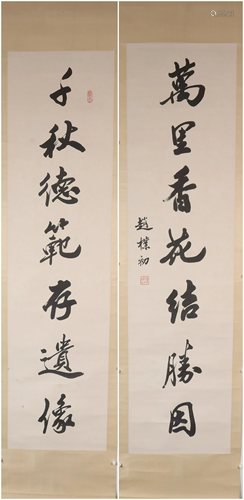 萬里香花結勝因
趙樸初
千秋德範存遺像